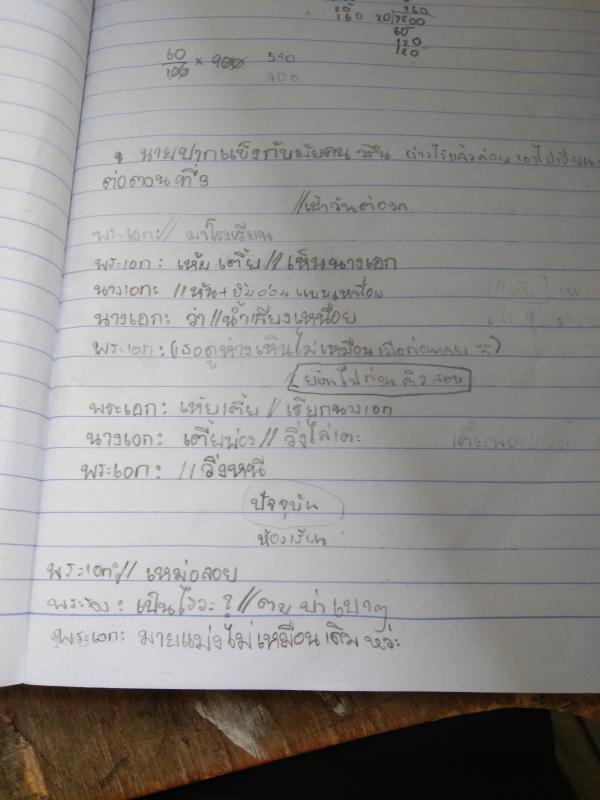 160 20/7200
60
120
120
60/100 × 900 540
900
นายปากแข็งกับยัยคน ต่างไรแล้วค่อย เอาไปเขียน
ต่อตอนที่ 3
//เช้าวันต่อมา
พระเอก: // มาโรงเรียน
พระเอก: เห้ย เตี้ย // เห็นนางเอก
นางเอก: //หัน+ยิ้มอ่อน แบบเหนื่อย
นางเอก: ว่า //น้ำเสียงเหนื่อย
พระเอก: (เธอดูห่างเหินไม่เหมือน เมื่อก่อนเลย
ย้อนไปก่อน ติวสอบ
พระเอก: เห้ยเตี้ย // เรียกนางเอก
นางเอก: เตี้ยพ่อง // วิ่งไล่เตะ
พระเอก: // วิ่งหนี
ปัจจุบัน
ห้องเรียน
พระเอก: // เหม่อลอย
พระรอง: เป็นไรวะ ? // ตบบ่าเบาๆ
พระเอก: มายแม่งไม่เหมือนเดิมหว่ะ